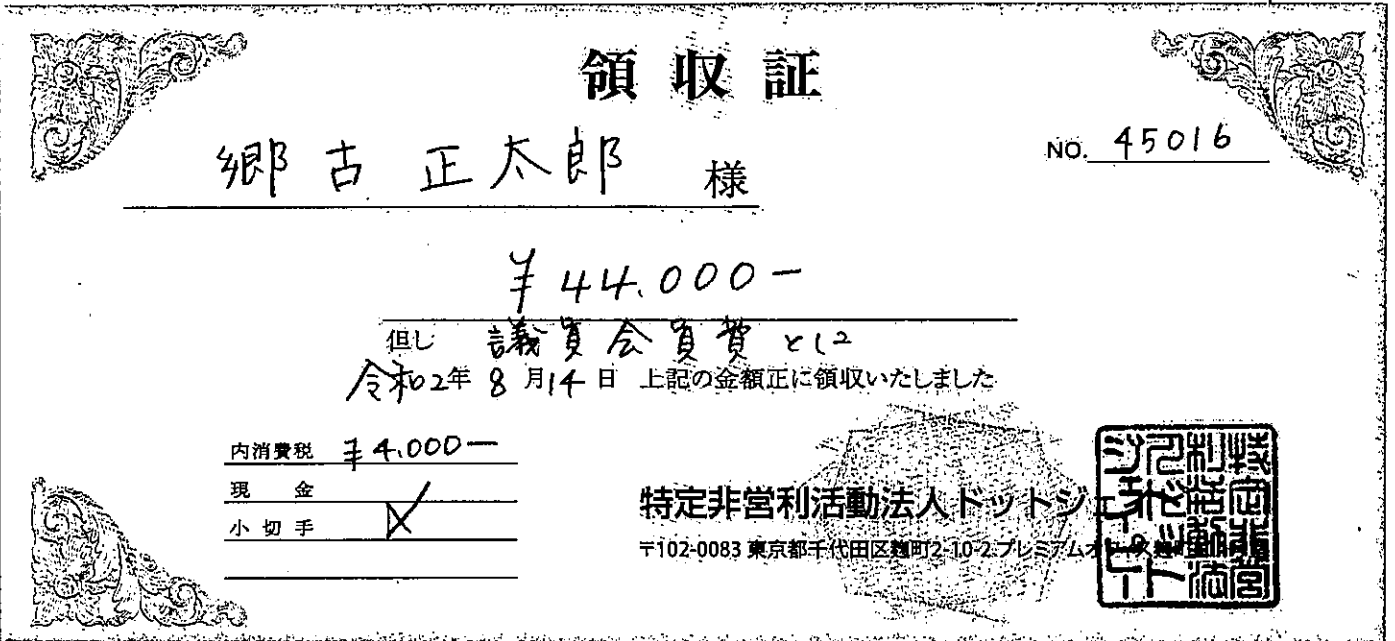 領収証
NO. 45016
郷古 正太郎 様
¥44,000-
但し 議員会員費として
令和2年 8月14日 上記の金額正に領収いたしました
内消費税 ¥4,000-
現金
小切手
特定非営利活動法人ドットジェイピー
〒102-0083 東京都千代田区麹町2-10-2 プレミアムオ
特定非営利活動法人ドットジェイピー